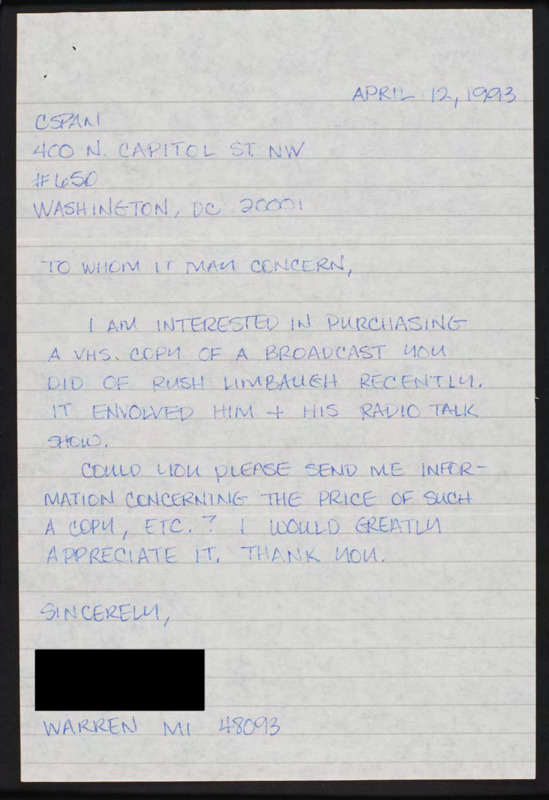 APRIL 12, 1993
CSPAN
400 N. CAPITOL ST. NW
#650
WASHINGTON, DC 20001
TO WHOM IT MAY CONCERN,
I AM INTERESTED IN PURCHASING
A VHS. COPY OF A BROADCAST YOU
DID OF RUSH LIMBAUGH RECENTLY.
IT ENVOLVED HIM + HIS RADIO TALK
SHOW.
COULD YOU PLEASE SEND ME INFOR-
MATION CONCERNING THE PRICE OF SUCH
A COPY, ETC.? I WOULD GREATLY
APPRECIATE IT. THANK YOU.
SINCERELY,
WARREN MI 48093